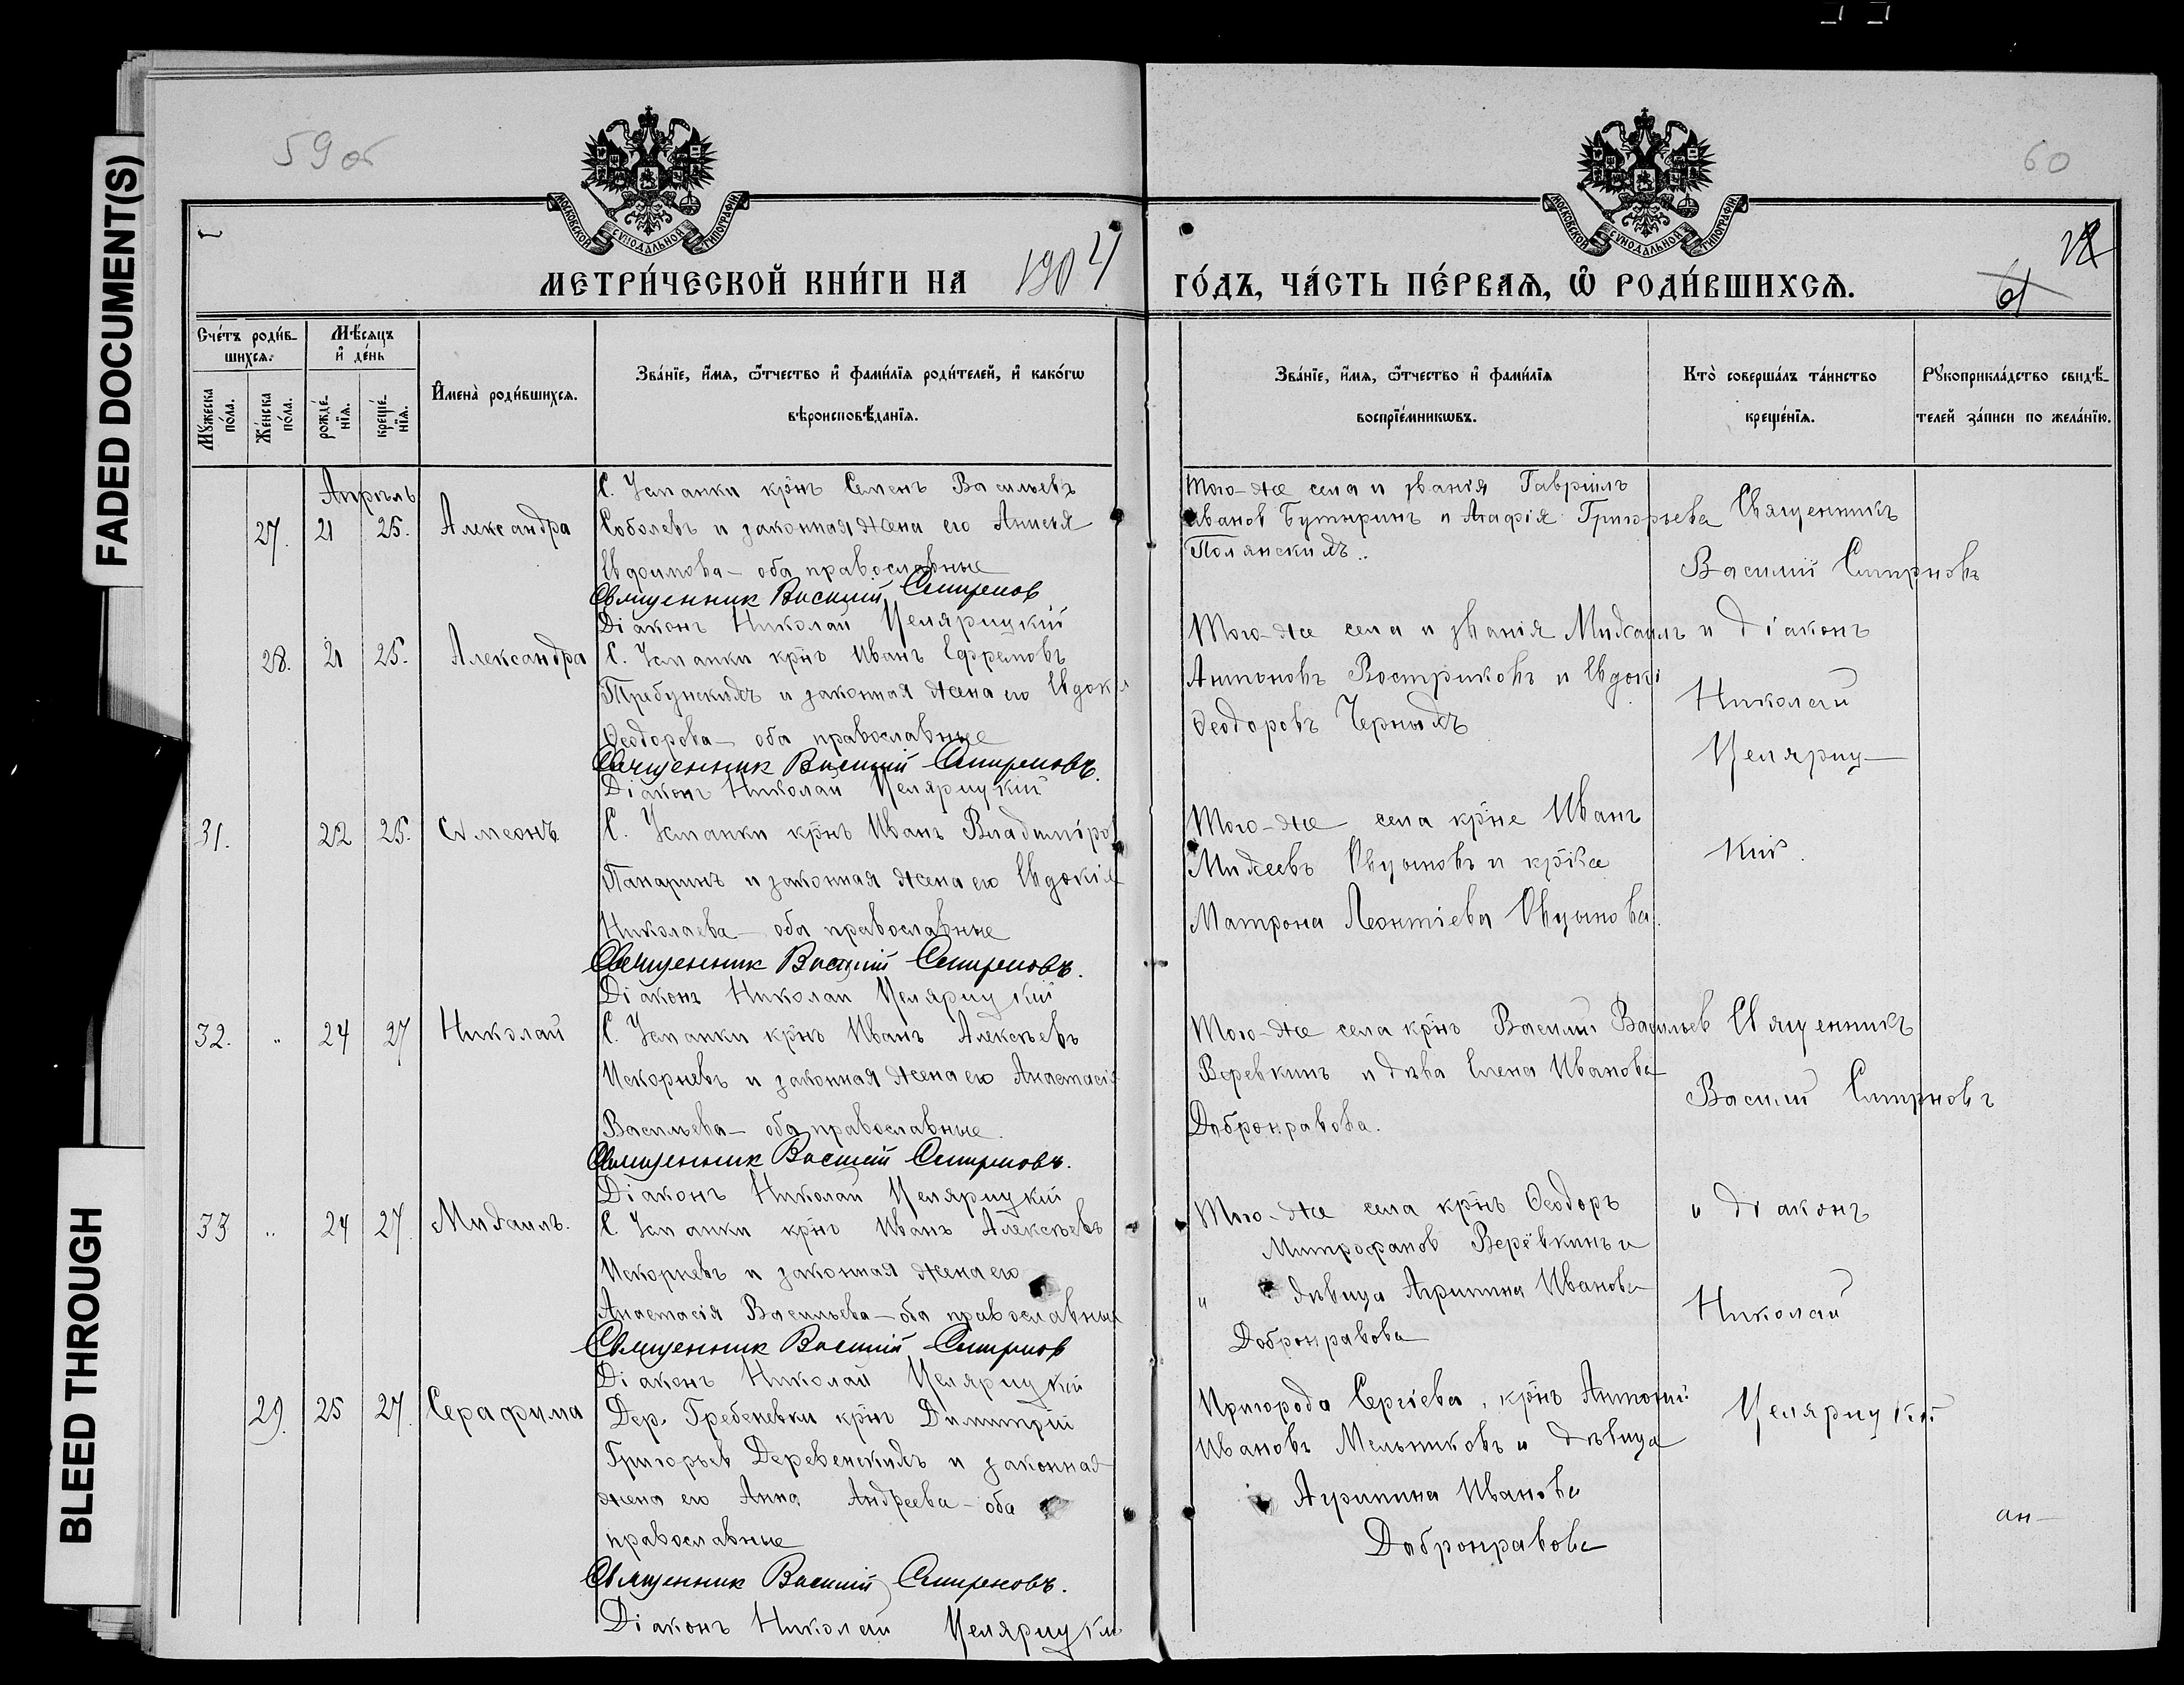 FADED DOCUMENT(S)
BLEED THROUGH
59 об
60
МОСКОВСКОЙ СѴНОДАЛЬНОЙ ТИПОГРАФІИ
МОСКОВСКОЙ СѴНОДАЛЬНОЙ ТИПОГРАФІИ
МЕТРИ́ЧЕСКОЙ КНИ́ГИ НА 1904
ГО́ДЪ, ЧА́СТЬ ПЕ́РВАѦ, Ѽ РОДИ́ВШИХСѦ.
61
Сче́тъ роди́в-
шихсѧ.
Мѣ́сѧцъ
и҆ де́нь
Мꙋ́жеска
по́ла.
Же́нска
по́ла.
рожде́-
нїѧ.
креще́-
нїѧ.
И҆мена̀ роди́вшихсѧ.
Зва́нїе, и҆́мѧ, ѻ҆́тчество и҆ фами́лїѧ роди́телей, и҆ како́гѡ
вѣроисповѣ́данїѧ.
Зва́нїе, и҆́мѧ, ѻ҆́тчество и҆ фами́лїѧ
воспрїе́мникѡвъ.
Кто̀ соверша́лъ та́инство
креще́нїѧ.
Рꙋкоприкла́дство свидѣ́-
телей за́писи по жела́нїю.
Апрѣль
27. 21 25. Александра
С. Усманки крнъ Семенъ Васильевъ
Соболевъ и законная жена его Анисья
Евдокимова – оба православные
Священник Василий Смирнов
Діаконъ Николай Целярицкій
Того-же села и званія Гавріилъ
Иванов Бутыринъ и Агафія Григорьева
Полянскихъ..
Священникъ
Василій Смирновъ
28. 21 25. Александра
С. Усманки крнъ Иванъ Ефремовъ
Требунскихъ и законная жена его Евдокі
Ѳеодорова – оба православные
Священник Василий Смирновъ.
Діаконъ Николай Целярицкій
Того-же села и званія Михаилъ
Антоновъ Востриковъ и Евдокі
Ѳеодоровъ Черныхъ
и діаконъ
Николай
Целяриц–
кій.
31. 22 25. Сѵмеонъ
С. Усманки крнъ Иванъ Владиміров
Панаринъ и законная жена его Евдокія
Николаева – оба православные
Священник Василий Смирновъ.
Діаконъ Николай Целярицкій
Того-же села крне Иванъ
Михеевъ Овчиновъ и крнка
Матрона Леонтіева Овчинова.
32. " 24 27 Николай
С. Усманки крнъ Иванъ Алексѣевъ
Искорневъ и законная жена его Анастасія
Васильева – оба православные.
Священник Василий Смирновъ.
Діаконъ Николай Целярицкій
Того-же села крнъ Василій Васильев
Веревкинъ и дѣва Елена Иванова
Добронравова.
Священникъ
Василій Смирновъ
33 " 24 27. Михаилъ.
С Усманки крнъ Иванъ Алексѣевъ
Искорневъ и законная жена его
Анастасія Васильева – оба православные
Священник Василий Смирнов
Діаконъ Николай Целярицкій
Того-же села крнъ Ѳеодоръ
Митрофанов Верёвкинъ и
" дѣвица Агрипина Иванова
Добронравова
и діаконъ
Николай
Целярицкій
29. 25 27. Серафима
Дер. Гребеневки крнъ Димитрій
Григорьев Деревенскихъ и законная
жена его Анна Андреева – оба
православные
Священник Василий Смирновъ.
Діаконъ Николай Целярицкі
Пригорода Сергіева, крнъ Антоній
Ивановъ Мельниковъ и дѣвица
Агрипина Иванова
Добронравова